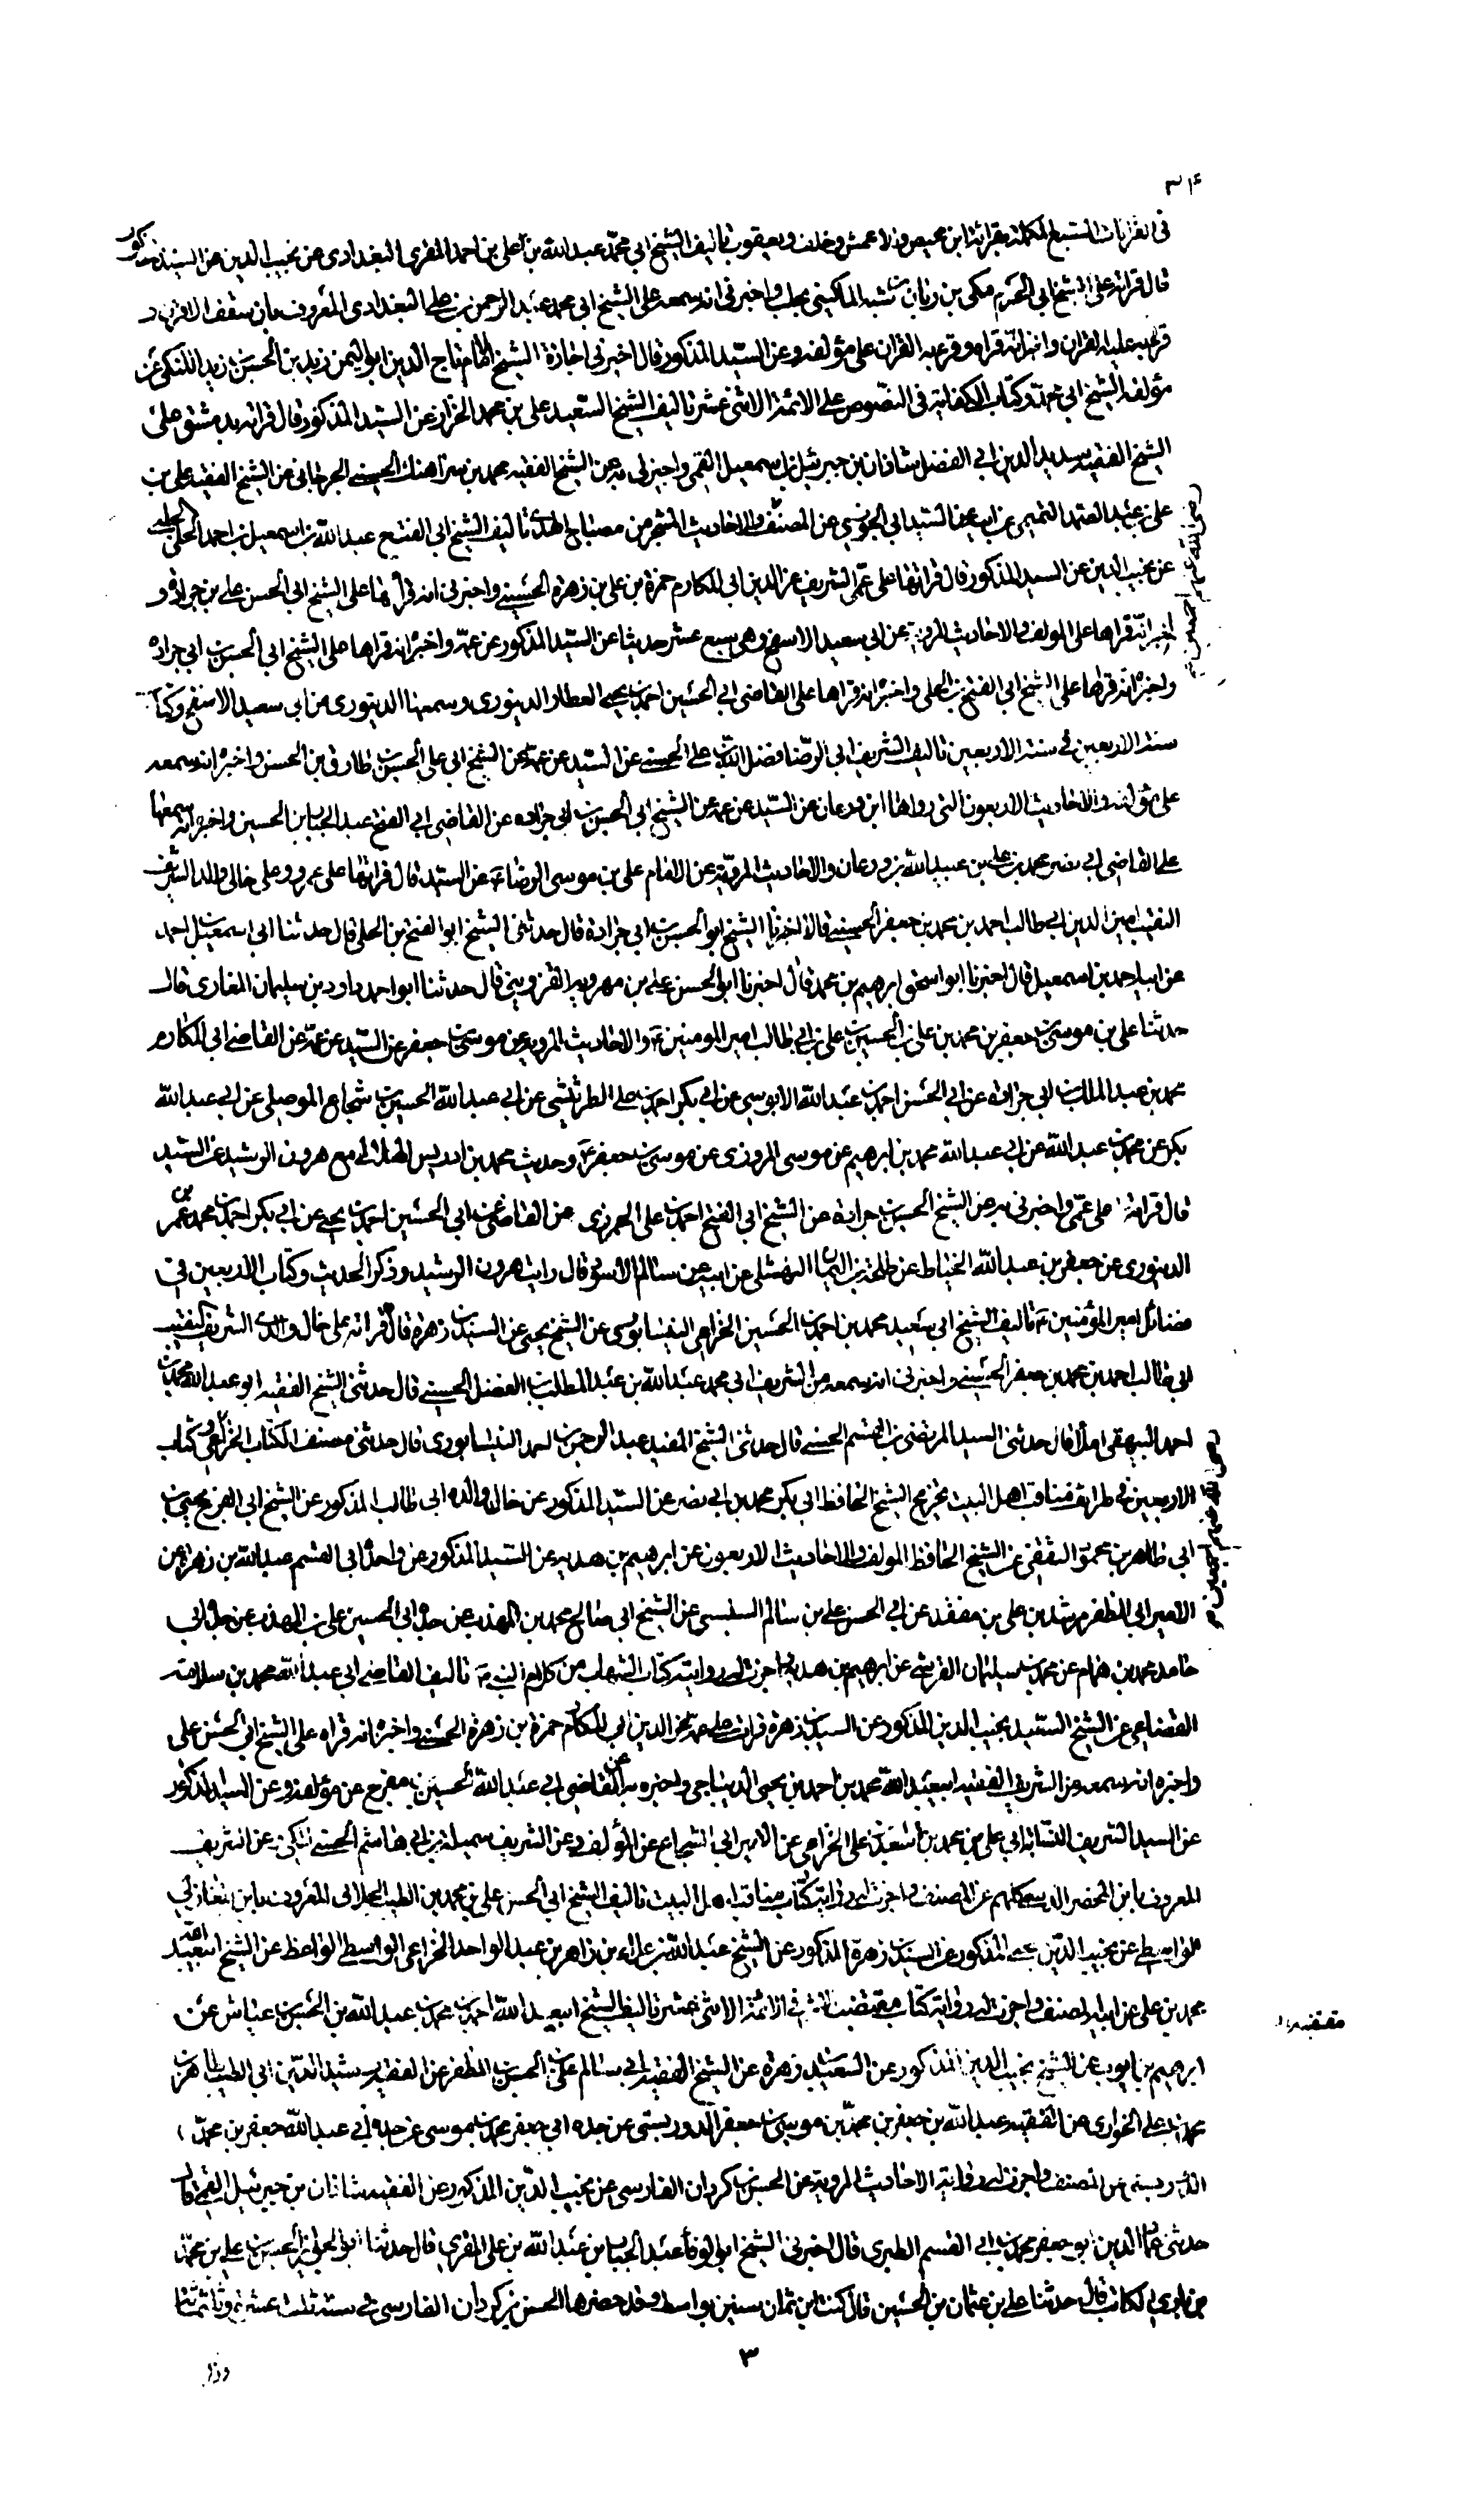 ٣١٤
في القرات السبع المكملة بقرائة ابن محيص والاعمش وخلف ويعقوب تاليف الشيخ ابي محمد عبد الله بن علي بن احمد المقري البغدادي عن نجيب الدين عن السيد المذكور
قال قراته على الشيخ ابي الحرم مكي بن ريان بن شبه الماكسيني بحلب واخبرني انه سمعه على الشيخ ابي محمد عبد الرحمن بن علي البغدادي المعروف بابن
عليه القران واخبر انه قراه وقرء به القران على مؤلفه وعن السيد المذكور قال اخبرني اجازة الشيخ الامام تاج الدين ابو اليمن زيد بن الحسن بن زيد الكندي عن
مؤلفه الشيخ ابي محمد وكتاب الكفاية في النصوص على الائمة الاثنى عشر تاليف الشيخ السعيد علي بن محمد الخزاز عن السيد المذكور قال قراته بدمشق على
الشيخ الفقيه سديد الدين ابي الفضل شاذان بن جبرئيل بن اسمعيل القمي واخبرني به عن الشيخ الفقيه محمد بن سراهنك الحسيني الجرجاني عن الشيخ الفقيه علي بن
علي بن عبد الصمد التميمي عن ابيه عن السيد ابي عن المصنف والاحاديث من مصباح تاليف الشيخ ابي الفتح عبد الله بن اسمعيل بن احمد الحلي الحلبي
عن نجيب الدين عن السيد المذكور قال قراتها على عمي الشريف عز الدين ابي المكارم حمزة بن علي بن زهرة الحسيني واخبرني انه قراها على الشيخ ابي الحسن علي بن جرادة و
اخبر انه قراها على المولف والاحاديث المروية عن ابي سعيد الاسفح وهي سبع عشر حديثا عن السيد المذكور عن عمه واخبره انه قراها على الشيخ ابي الحسن بن ابي جرادة
واخبره انه قراها على الشيخ ابي الفتح بن الحلي واخبره انه قراها على القاضي ابي الحسين احمد بن يحيى العطار الدينوري وسمعها الدينوري من ابي سعيد الاسفح وكتاب
سنة الاربعين في سنة الاربعين تاليف الشريف ابي الرضا فضل الله بن علي الحسني عن السيد عن عمه عن الشيخ ابي علي الحسن بن طارق بن الحسن واخبره انه سمعه
على مؤلفه والاحاديث الاربعون التي رواها ابن ودعان عن السيد عن عمه عن الشيخ ابي الحسن بن ابي جراده عن القاضي ابي الفتح عبد الجبار بن الحسين واخبره انه سمعها
على القاضي ابي نصر محمد بن علي بن عبيد الله بن ودعان والاحاديث المروية عن الامام علي بن موسى الرضا ع عن السيد قال قراتها على عمي وعلى خالي والد الشريف
النقيب امين الدين ابي طالب احمد بن محمد بن جعفر الحسيني قالا اخبرنا الشيخ ابو الحسن بن ابي جرادة قال حدثني الشيخ ابو الفتح بن الحلي قال حدثنا ابي اسمعيل بن احمد
عن ابيه احمد بن اسمعيل قال اخبرنا ابو اسحق ابرهيم بن محمد قال اخبرنا ابو الحسن علي بن مهرويه القزويني قال حدثنا ابو احمد داود بن سليمان الغازي قال
حدثنا علي بن موسى بن جعفر بن محمد بن علي بن الحسين بن علي بن ابي طالب امير المومنين ع والاحاديث المروية عن موسى بن جعفر عن السيد عن عمه عن القاضي ابي المكارم
محمد بن عبد الملك بن ابي جرادة عن ابي الحسن احمد بن عبد الله الابنوسي عن ابي بكر احمد بن علي الطرثيثي عن ابي عبد الله الحسين بن شجاع الموصلي عن ابي عبد الله
بكر عن محمد بن عبد الله عن ابي عبد الله محمد بن ابرهيم عن موسى المروزي عن موسى بن جعفر ع وحديث محمد بن ادريس مع هرون الرشيد عن السيد
قال قراته على عمي واخبرني به عن الشيخ الحسن بن جرادة عن الشيخ ابي الفتح احمد بن علي الجزري عن القاضي ابي الحسين احمد بن يحيى عن ابي بكر احمد بن محمد بن عمر
الدينوري عن جعفر بن عبد الله الخياط عن النهشلي عن ابيه عن سالم الاسواني قال رايت هرون الرشيد وذكر الحديث وكتاب الاربعين في
فضائل امير المؤمنين ع تاليف الشيخ ابي سعيد محمد بن احمد بن الحسين الخزاعي النيسابوري عن الشيخ يحيى عن السيد بن زهرة قال قراته على خال والدي الشريف النقيب
ابي طالب احمد بن محمد بن جعفر الحسيني واخبرني انه سمعه من الشريف ابي محمد عبد الله بن عبد المطلب بن الفضل الحسيني قال حدثني الشيخ الفقيه ابو عبد الله محمد بن
احمد البيهقي املا قال حدثني السيد المرتضى بن الهيثم الحسني قال حدثني الشيخ المفيد عبد الرحمن بن احمد النيسابوري قال حدثني مصنف الكتاب الخزاعي وكتاب
الاربعين في طرايف مناقب اهل البيت تخريج الشيخ الحافظ ابي بكر محمد بن ابي نصر عن السيد المذكور عن خال والده ابي طالب المذكور عن الشيخ ابي الفرج يحيى بن
ابي طاهر بن محمود الثقفي عن الشيخ الحافظ المولف والاحاديث الاربعون عن ابرهيم بن هدبه عن السيد المذكور عن والده ابي القسم عبد الله بن زهرة عن
الامير ابي المظفر مرشد بن علي بن منقذ عن ابي الحسن علي بن سالم السنبسي عن الشيخ ابي صالح محمد بن المهذب عن جده ابي الحسين علي بن المهذب عن جده ابي
حامد محمد بن همام عن محمد بن سليمان القرشي عن ابرهيم بن هدبه واجزت له رواية كتاب الشهاب من كلام النبي ص تاليف القاضي ابي عبد الله محمد بن سلامة
القضاعي عن الشيخ السعيد نجيب الدين المذكور عن السيد بن زهرة قراه على عمه عز الدين ابي المكارم حمزة بن زهرة الحسيني واخبره انه قراه على الشيخ ابي الحسن علي
واخبره انه سمعه من الشريف الفقيه ابي عبد الله محمد بن احمد بن يحيى الديباجي واخبره به عن القاضي ابي عبد الله الحسين بن مفرج عن مؤلفه وعن السيد المذكور
عن السيد الشريف النسابة ابي علي محمد بن اسعد بن علي عن الامير ابي الشجاع عن المؤلف وعن الشريف بن ابي هاشم الحسني المكي عن الشريف
المعروف بابن كلهم عن المصنف واجزت له رواية كتاب مناقب اهل البيت تاليف الشيخ ابي الحسن علي بن محمد بن الطيب الجلابي المعروف بابن المغازلي
الواسطي عن نجيب الدين يحيى المذكور عن السيد بن زهرة المذكور عن الشيخ عبد الله بن زاهر بن عبد الواحد الخزاعي الواسطي الواعظ عن الشيخ ابي عبد الله
محمد بن علي عن ابيه المصنف واجزت له رواية كتاب مقتضب الاثر في الائمة الاثنى عشر تاليف الشيخ ابي عبد الله احمد بن محمد بن عبيد الله بن الحسن بن عياش عن
ابرهيم بن ايوب عن الشيخ نجيب الدين المذكور عن السيد بن زهرة عن الشيخ الفقيه ابي سالم علي بن الحسن بن المظفر عن الفقيه رشيد الدين ابي الطيب طاهر بن
محمد بن علي الخواري عن الفقيه عبد الله بن جعفر بن محمد بن موسى بن جعفر الدوريستي عن جده ابي جعفر محمد بن موسى عن جده ابي عبد الله جعفر بن محمد
الدوريستي عن المصنف واجزت له رواية الاحاديث المروية عن الحسن بن كردان الفارسي عن نجيب الدين المذكور عن الفقيه شاذان بن جبرئيل القمي قال
حدثني عماد الدين ابو جعفر محمد بن ابي القسم الطبري قال اخبرني الشيخ ابو الوفا عبد الجبار بن عبد الله بن علي المقري قال حدثنا ابو الحسن علي بن محمد
الكاتب قال حدثنا علي بن عثمان بن الحسين قال كنت ابن ثمان سنين بواسط وقد حضرها الحسن بن كردان الفارسي في سنة ثلث عشرة وثلثمائة
٣